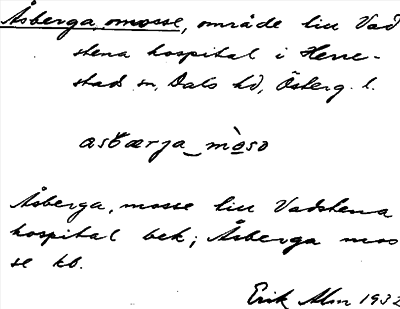 Åsberga, mosse, område till Vad
stena hospital i Herre-
stad sn, Dals hd, Österg. l.
Åsberga, mosse till Vadstena
hospital bek; Åsberga mos
se kb.
Erik Alm 1932